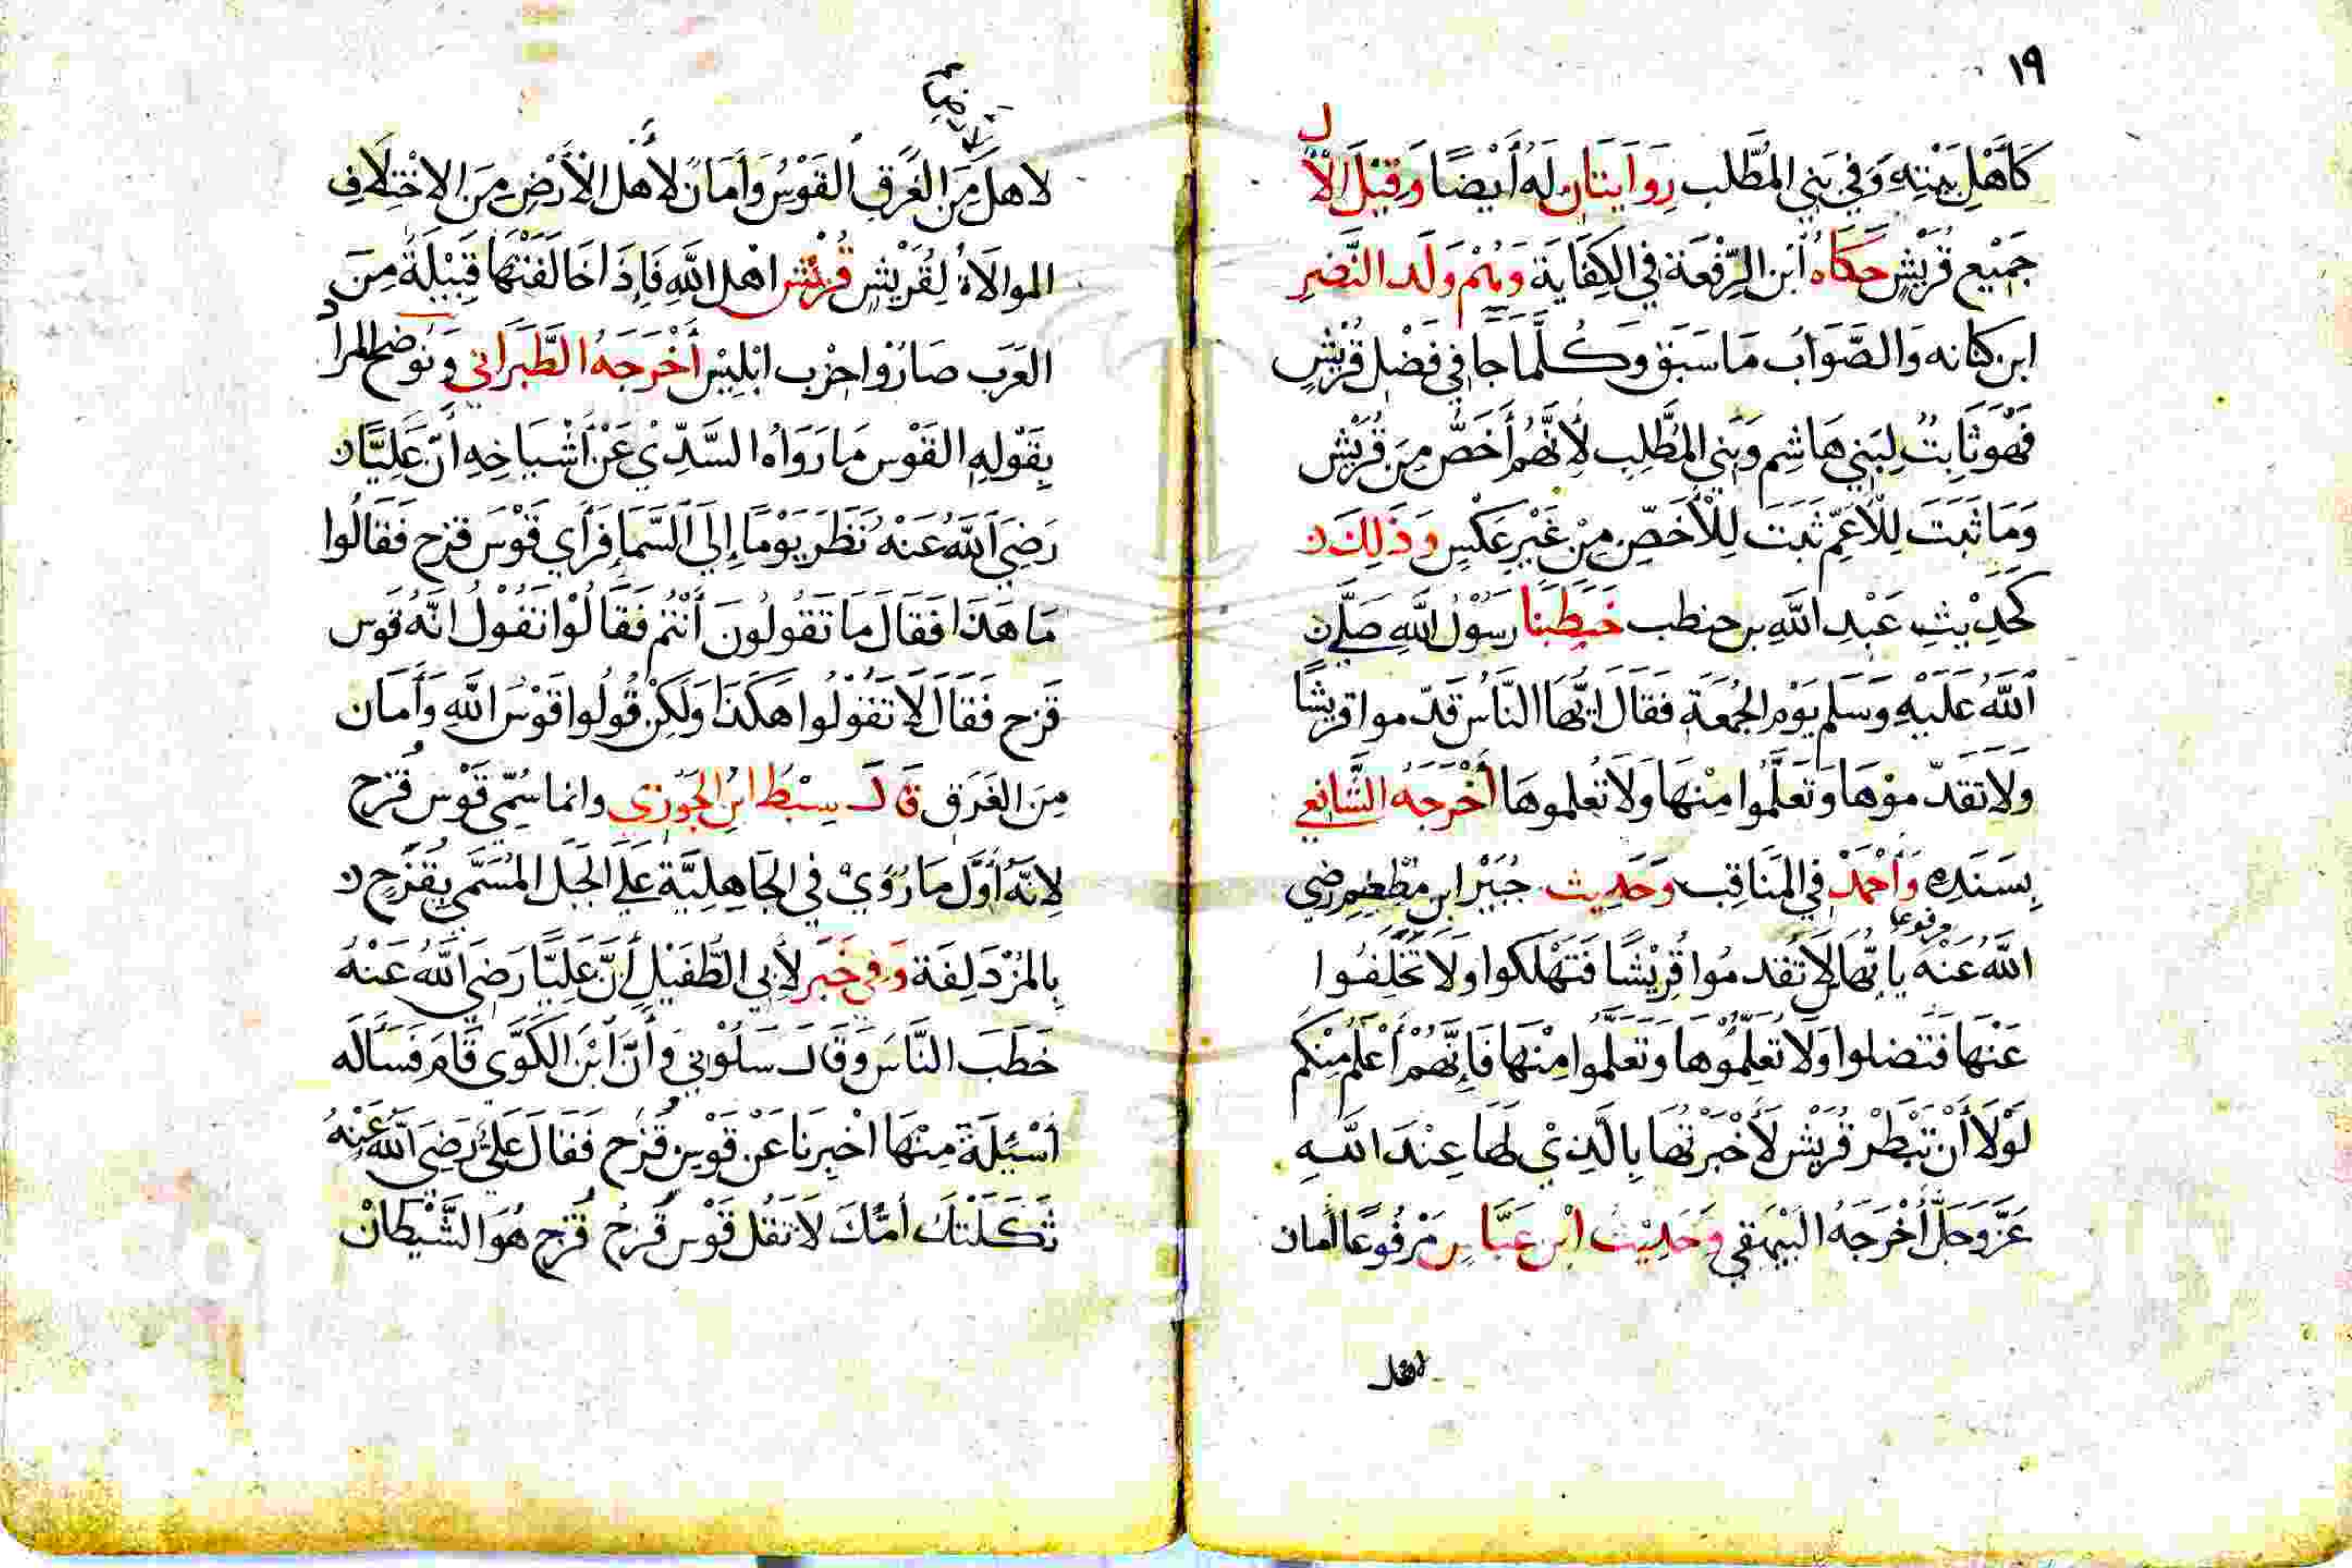 ١٩
كَأَهْلِ بَيْتِهِ وَفِي بَنِي المُطَّلب رِوَايَتَانِ لَهُ أَيْضًا وَقِيْلَ الْآل
جَمِيْعِ قُرَيْشٍ حَكَاهُ ابْنِ الرِّفْعَة فِي الكِفَايَة وَهُمْ وَلَد النَّضِرِ
ابن كنانه وَالصَّوَابُ مَا سَبَقَ وَكُلَّمَا جَا فِي فَضْل قُرَيْشٍ
فَهُوَ ثَابِتٌ لِبَنِي هَاشِم وَبَنِي المُطَّلِب لِأَنَّهُم أَخَصُّ مِن قُرَيْش
وَمَا ثَبَتَ لِلْأَعَمِّ ثَبَتَ لِلْأَخَصِّ مِنْ غَيْرِ عَكْسٍ وَذَلِكَ
كَحَدِيْثِ عَبْدِ اللَّهِ بن حنطب خَطَبَنَا رَسُوْلُ اللَّهِ صَلَّى
اللَّهُ عَلَيْهِ وَسَلم يَوْم الجُمعَة فَقَالَ ايُّهَا النَّاسُ قَدّموا قريشًا
وَلَا تَقَدّموْهَا وَتَعَلَّمُوا مِنْهَا وَلَا تُعلموهَا أَخْرَجَهُ الشَّافعي
بِسَنَدِهِ وَأَحْمَدْ فِي المَنَاقِب وَحَدِيث جُبَيْر ابن مُطْعِم رضي
اللَّهُ عَنْهُ مرفوعا يا ايُّهَا النَّاس لَا تَقدمُوا قُرَيْشًا فَتَهْلَكوا وَلَا تَخَلَّفُوا
عَنْهَا فَتَضلوا وَلَا تُعَلِّمُوْهَا وَتَعَلَّمُوا مِنْهَا فَإِنَّهُمْ أَعْلَمُ مِنْكُم
لَوْلَا أَنْ تَبْطَرْ قُرَيْش لَأَخْبَرْتُهَا بِالَّذِيْ لَهَا عِنْدَ اللَّهِ
عَزَّ وَجَلَّ أَخْرَجَهُ البَيْهَقِي وَحَدِيْث ابْن عَبَّاسٍ مَرْفُوعًا أمان
لاهل
لاهل مِنَ الغَرَقِ القَوْسُ وَأَمَانٌ لأَهل الْأَرْضِ مِنَ الاِخْتِلَافِ
الموالاةُ لِقُرَيْشٍ قُرَيْش اهل اللَّهِ فَإِذَا خَالَفَتْهَا قَبِيْلَةٌ مِنَ
العَرَب صَارُوْا حِزْب ابْلِيْس أَخْرَجَهُ الطَّبَرَاني وَنُوضح المراد
بِقَوْلِهِ القَوْس مَا رَوَاهُ السَّدِّيْ عَنْ أَشْيَاخِهِ أَنَّ عَلِيًّا
رَضِيَ اللَّهُ عَنْهُ نَظَرَ يَوْمًا إِلَى السَّمَا فَرَأَي قَوْسَ قزح فَقَالُوا
مَا هَذَا فَقَالَ مَا تَقُولُونَ أَنْتُم فَقَالُوْا نَقُوْلُ انَّهُ قَوس
قَزح فَقَالَ لَا تَقُوْلُوا هَكَذَا وَلَكِنْ قُولُوا قَوْسُ اللَّهِ وَأَمَان
مِنَ الغَرَق قَالَ سِبْطُ ابْنِ الجَوْزِي وانما سُمّيَ قَوْس قُزَح
لِانَّهُ أَوَّلَ مَا رُؤيْ فِي الجَاهِلِيَّة عَلَى الجَبَلِ المُسَمَّى بِقُزَحٍ
بِالمُزْدَلِفَة وَفِي خَبَر لأَبِي الطُّفَيْلِ أَنَّ عَلِيًّا رَضِيَ اللَّهُ عَنْهُ
خَطَبَ النَّاسَ وَقَالَ سَلُوْنِي وَأَنَّ ابْنَ الكَوَّى قَامَ فَسَأَلَه
أَسْئِلَةً مِنْهَا اخْبِرنَا عَنْ قَوْسِ قُزَح فَقَالَ عَلِيّ رَضِيَ اللَّهُ عَنْهُ
ثَكَلَتْكَ أُمُّكَ لَا تَقُل قَوْس قُزَحُ قُزَح هُوَ الشَّيْطَانْ